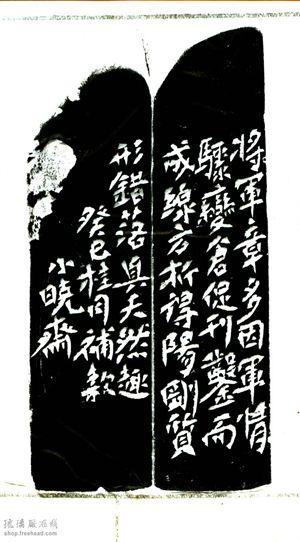 將軍章多因軍情
驟變倉促刊鑿而
成線方折得陽剛質
形錯落具天然趣
癸巳桂月補款
小曉齋
shop.freehead.com